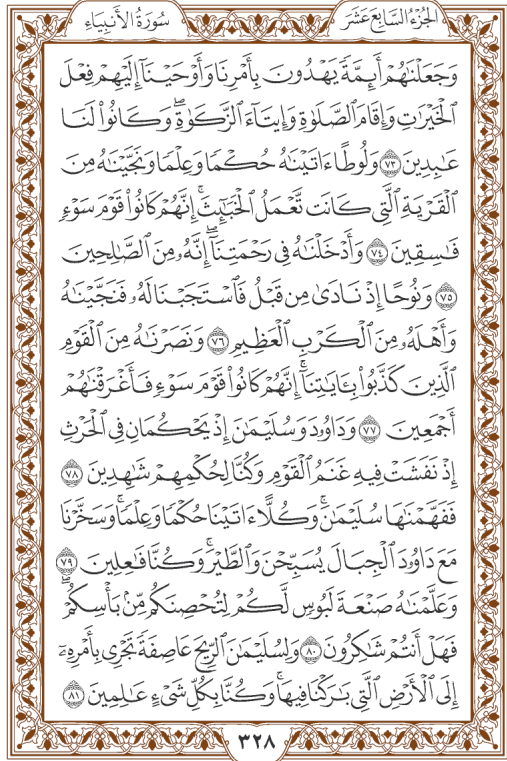 الجُزْءُ السَّابِعَ عَشَرَ سُورَةُ الأَنبِيَاءِ
وَجَعَلْنَٰهُمْ أَئِمَّةً يَهْدُونَ بِأَمْرِنَا وَأَوْحَيْنَآ إِلَيْهِمْ فِعْلَ
ٱلْخَيْرَٰتِ وَإِقَامَ ٱلصَّلَوٰةِ وَإِيتَآءَ ٱلزَّكَوٰةِ ۖ وَكَانُوا۟ لَنَا
عَٰبِدِينَ ٧٣ وَلُوطًا ءَاتَيْنَٰهُ حُكْمًا وَعِلْمًا وَنَجَّيْنَٰهُ مِنَ
ٱلْقَرْيَةِ ٱلَّتِى كَانَت تَّعْمَلُ ٱلْخَبَٰٓئِثَ ۗ إِنَّهُمْ كَانُوا۟ قَوْمَ سَوْءٍ
فَٰسِقِينَ ٧٤ وَأَدْخَلْنَٰهُ فِى رَحْمَتِنَآ ۖ إِنَّهُۥ مِنَ ٱلصَّٰلِحِينَ
٧٥ وَنُوحًا إِذْ نَادَىٰ مِن قَبْلُ فَٱسْتَجَبْنَا لَهُۥ فَنَجَّيْنَٰهُ
وَأَهْلَهُۥ مِنَ ٱلْكَرْبِ ٱلْعَظِيمِ ٧٦ وَنَصَرْنَٰهُ مِنَ ٱلْقَوْمِ
ٱلَّذِينَ كَذَّبُوا۟ بِـَٔايَٰتِنَآ ۚ إِنَّهُمْ كَانُوا۟ قَوْمَ سَوْءٍ فَأَغْرَقْنَٰهُمْ
أَجْمَعِينَ ٧٧ وَدَاوُۥدَ وَسُلَيْمَٰنَ إِذْ يَحْكُمَانِ فِى ٱلْحَرْثِ
إِذْ نَفَشَتْ فِيهِ غَنَمُ ٱلْقَوْمِ وَكُنَّا لِحُكْمِهِمْ شَٰهِدِينَ ٧٨
فَفَهَّمْنَٰهَا سُلَيْمَٰنَ ۚ وَكُلًّا ءَاتَيْنَا حُكْمًا وَعِلْمًا ۚ وَسَخَّرْنَا
مَعَ دَاوُۥدَ ٱلْجِبَالَ يُسَبِّحْنَ وَٱلطَّيْرَ ۚ وَكُنَّا فَٰعِلِينَ ٧٩
وَعَلَّمْنَٰهُ صَنْعَةَ لَبُوسٍ لَّكُمْ لِتُحْصِنَكُم مِّنۢ بَأْسِكُمْ ۖ
فَهَلْ أَنتُمْ شَٰكِرُونَ ٨٠ وَلِسُلَيْمَٰنَ ٱلرِّيحَ عَاصِفَةً تَجْرِى بِأَمْرِهِۦٓ
إِلَى ٱلْأَرْضِ ٱلَّتِى بَٰرَكْنَا فِيهَا ۚ وَكُنَّا بِكُلِّ شَىْءٍ عَٰلِمِينَ ٨١
٣٢٨